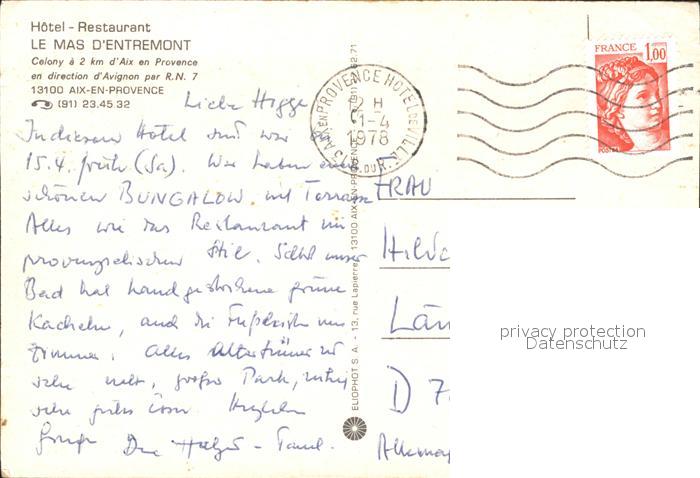 Hôtel - Restaurant
LE MAS D'ENTREMONT
Celony à 2 km d'Aix en Provence
en direction d'Avignon par R.N. 7
13100 AIX-EN-PROVENCE
(91) 23.45.32
Liebe
In diesem Hotel sind wir bis
15.4. früh (Sa). Wir haben einen
schönen BUNGALOW mit Terrasse
Alles wie das Restaurant im
provenzalischen Stil. Selbst unser
Bad hat handgestrichene grüne
Kacheln, auch die
Zimmer. Alles
sehr nett, großer Park, ruhig
sehr gutes Essen. Herzliche
Grüße Dein
ELIOPHOT S. A. - 13, rue Lapierre, 13100 AIX-EN-PROVENCE
AIX EN PROVENCE HOTEL DE VILLE
12 H
11-4
1978
B. DU R.
FRANCE 1,00
FRAU
Hild
Län
D 7
Allemag
privacy protection
Datenschutz